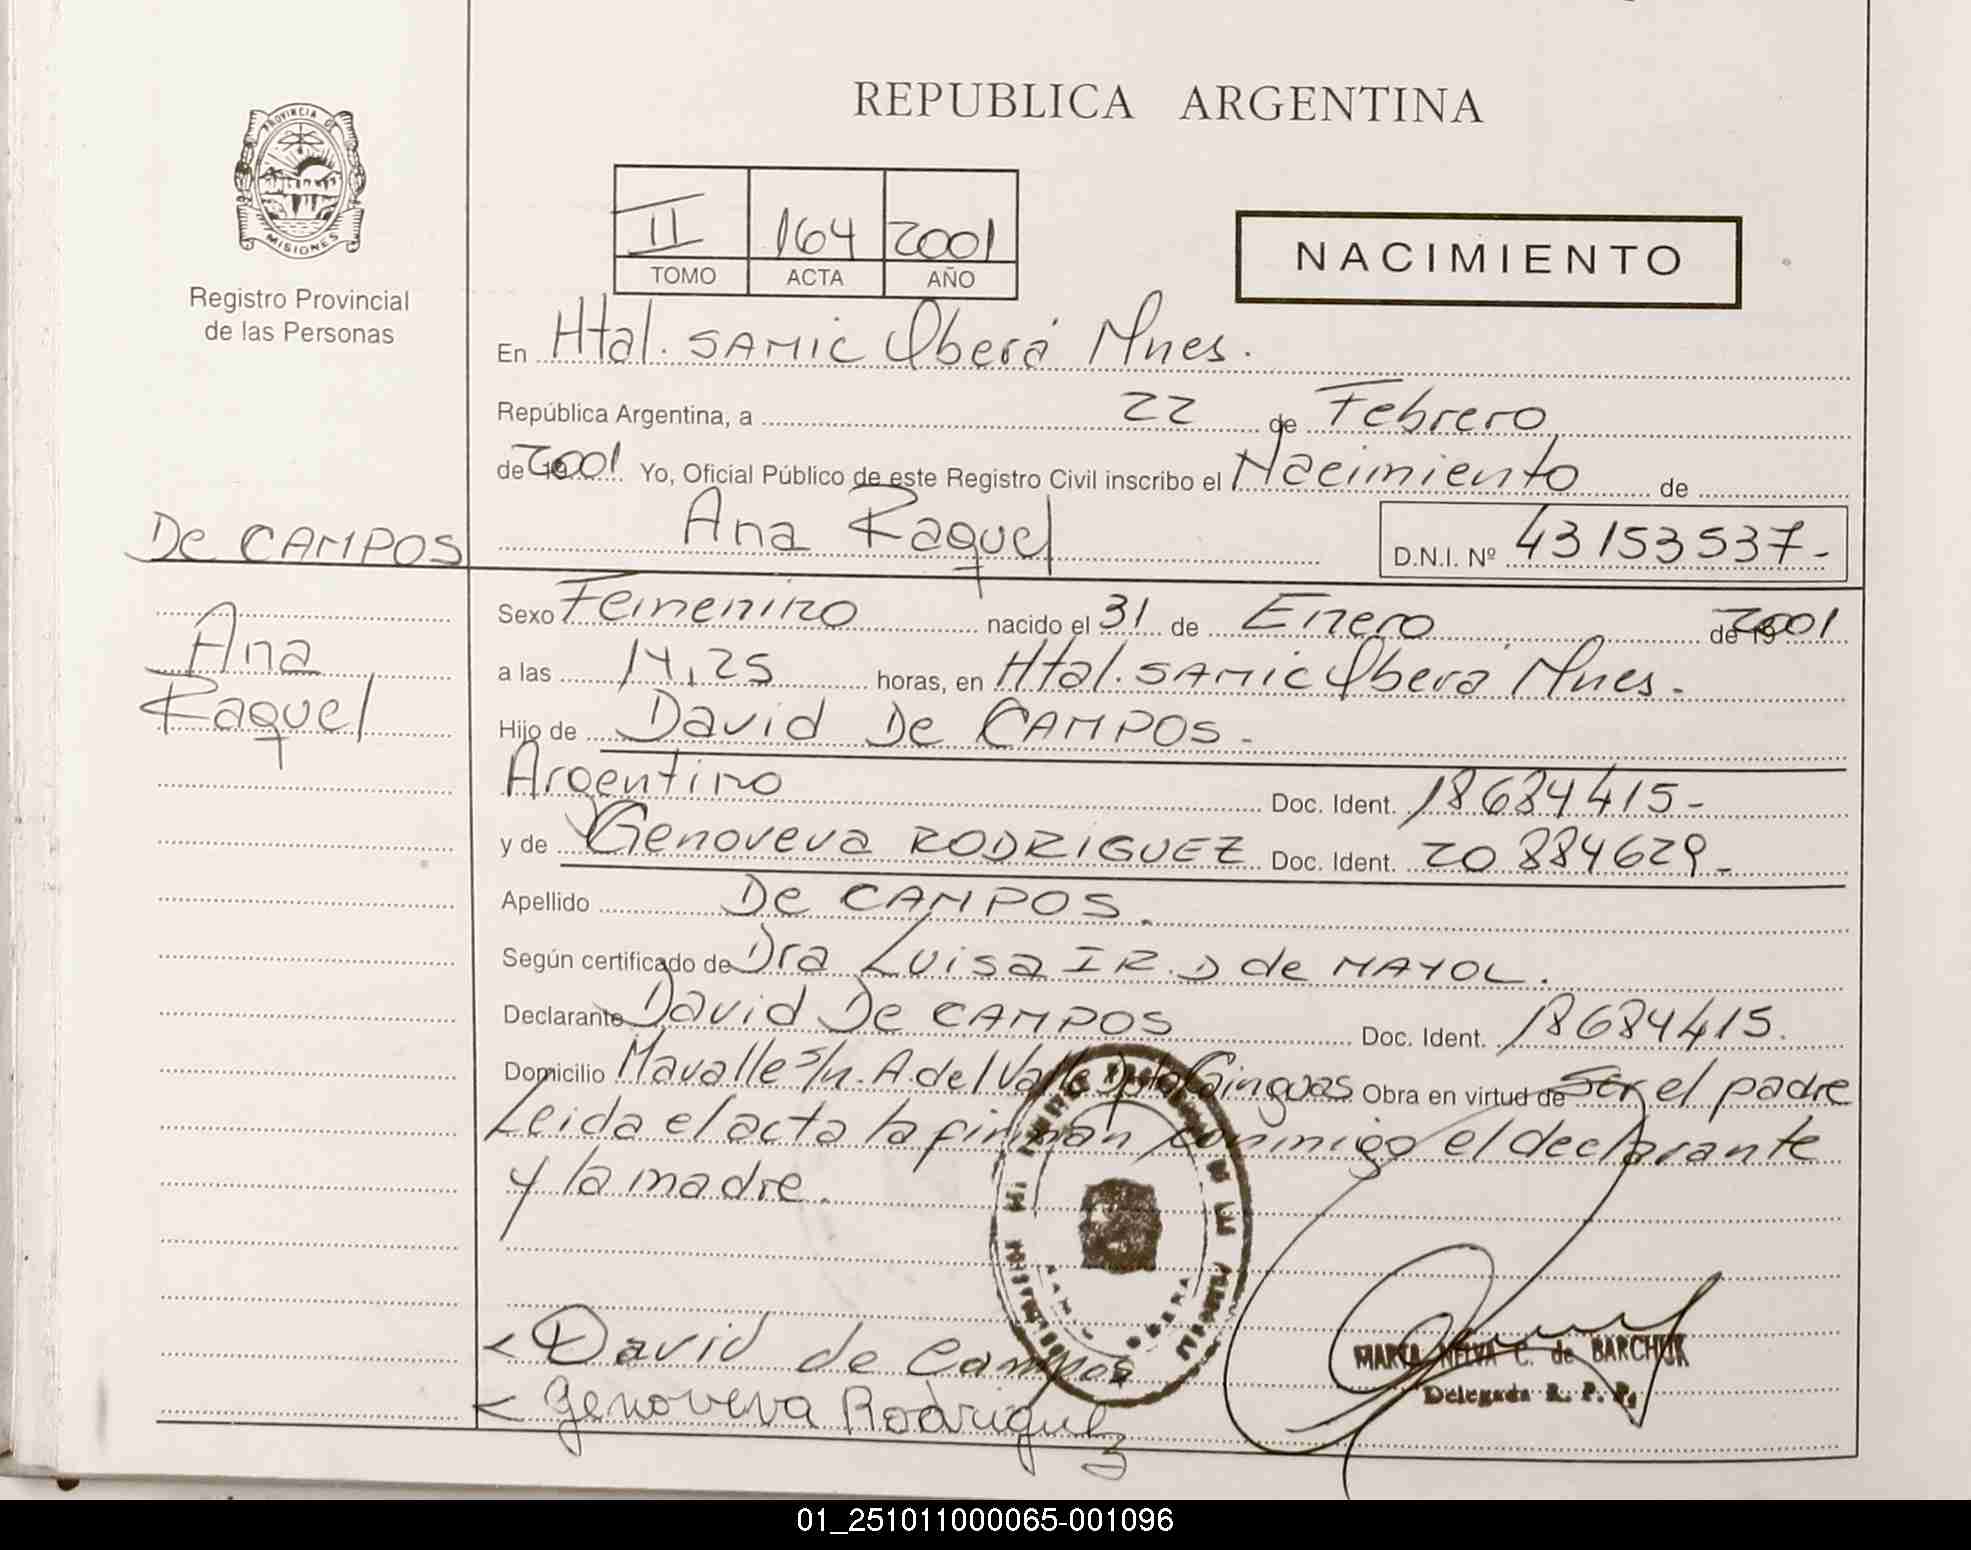 REPUBLICA ARGENTINA
PROVINCIA DE
MISIONES
Registro Provincial
de las Personas
II 164 2001
TOMO ACTA AÑO
NACIMIENTO
En Htal. SAMIC Oberá Mnes.
República Argentina, a 22 de Febrero
de 2001 Yo, Oficial Público de este Registro Civil inscribo el Nacimiento de
Ana Raquel D.N.I. Nº 43153537-
De CAMPOS
Ana
Raquel
Sexo Femenino nacido el 31 de Enero de 2001
a las 14,25 horas, en Htal. SAMIC Oberá Mnes.
Hijo de David De CAMPOS-
Argentino Doc. Ident. 18684415-
y de Genoveva RODRIGUEZ Doc. Ident. 20884629-
Apellido De CAMPOS.
Según certificado de Dra Luisa I R. D de MAYOL.
Declarante David De CAMPOS Doc. Ident. 18684415.
Domicilio Mavalle s/n. A. del Valle Obra en virtud de Ser el padre
Leida el acta la firman conmigo el declarante
y la madre.
David de Campos
Genoveva Rodriguez
MARTA NELVA C. de BARCHUK
Delegada R. P. P.
01_251011000065-001096